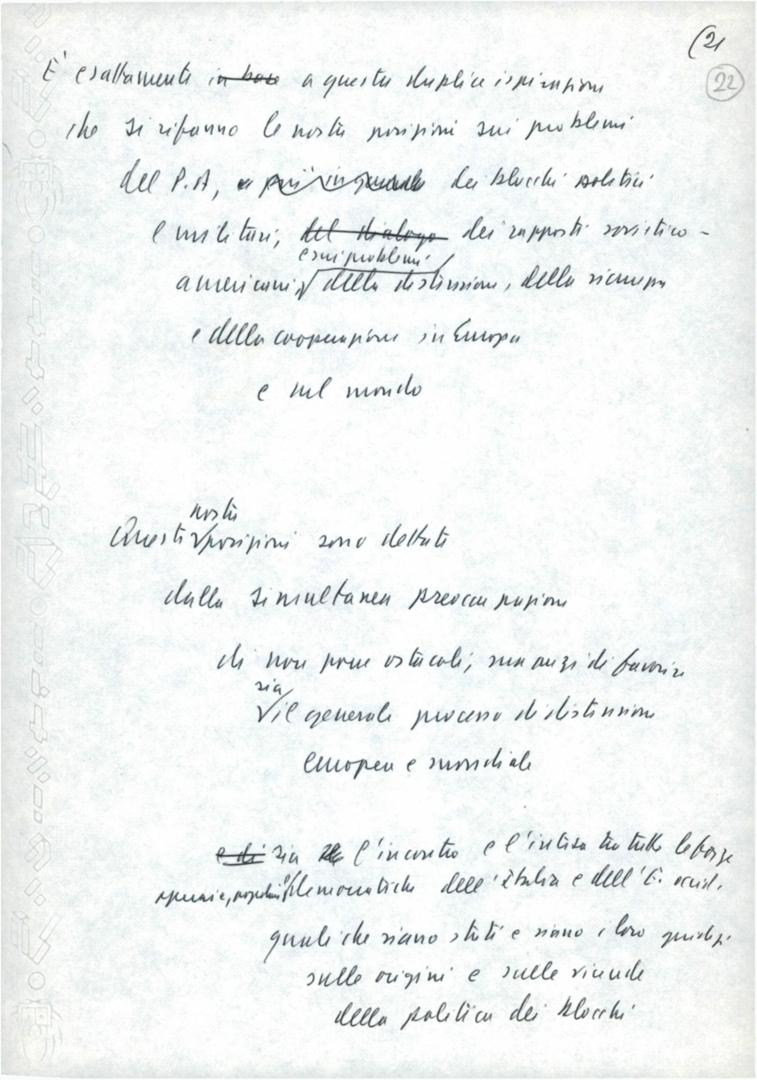 (21
22
È esattamente in base a questa duplice ispirazione
che si rifanno le nostre posizioni sui problemi
del P.A, e più in generale dei blocchi politici
e militari, del dialogo dei rapporti sovietico-
e sui problemi
americani, della distensione, della sicurezza
e della cooperazione in Europa
e nel mondo
nostre
Queste posizioni sono dettate
dalla simultanea preoccupazione
di non porre ostacoli, ma anzi di favorire
sia
il generale processo di distensione
europea e mondiale
e di sia l'incontro e l'intesa tra tutte le forze
operaie, popolari democratiche dell'Italia e dell'E. occid.
quali che siano stati e siano i loro giudizi
sulle origini e sulle vicende
della politica dei blocchi